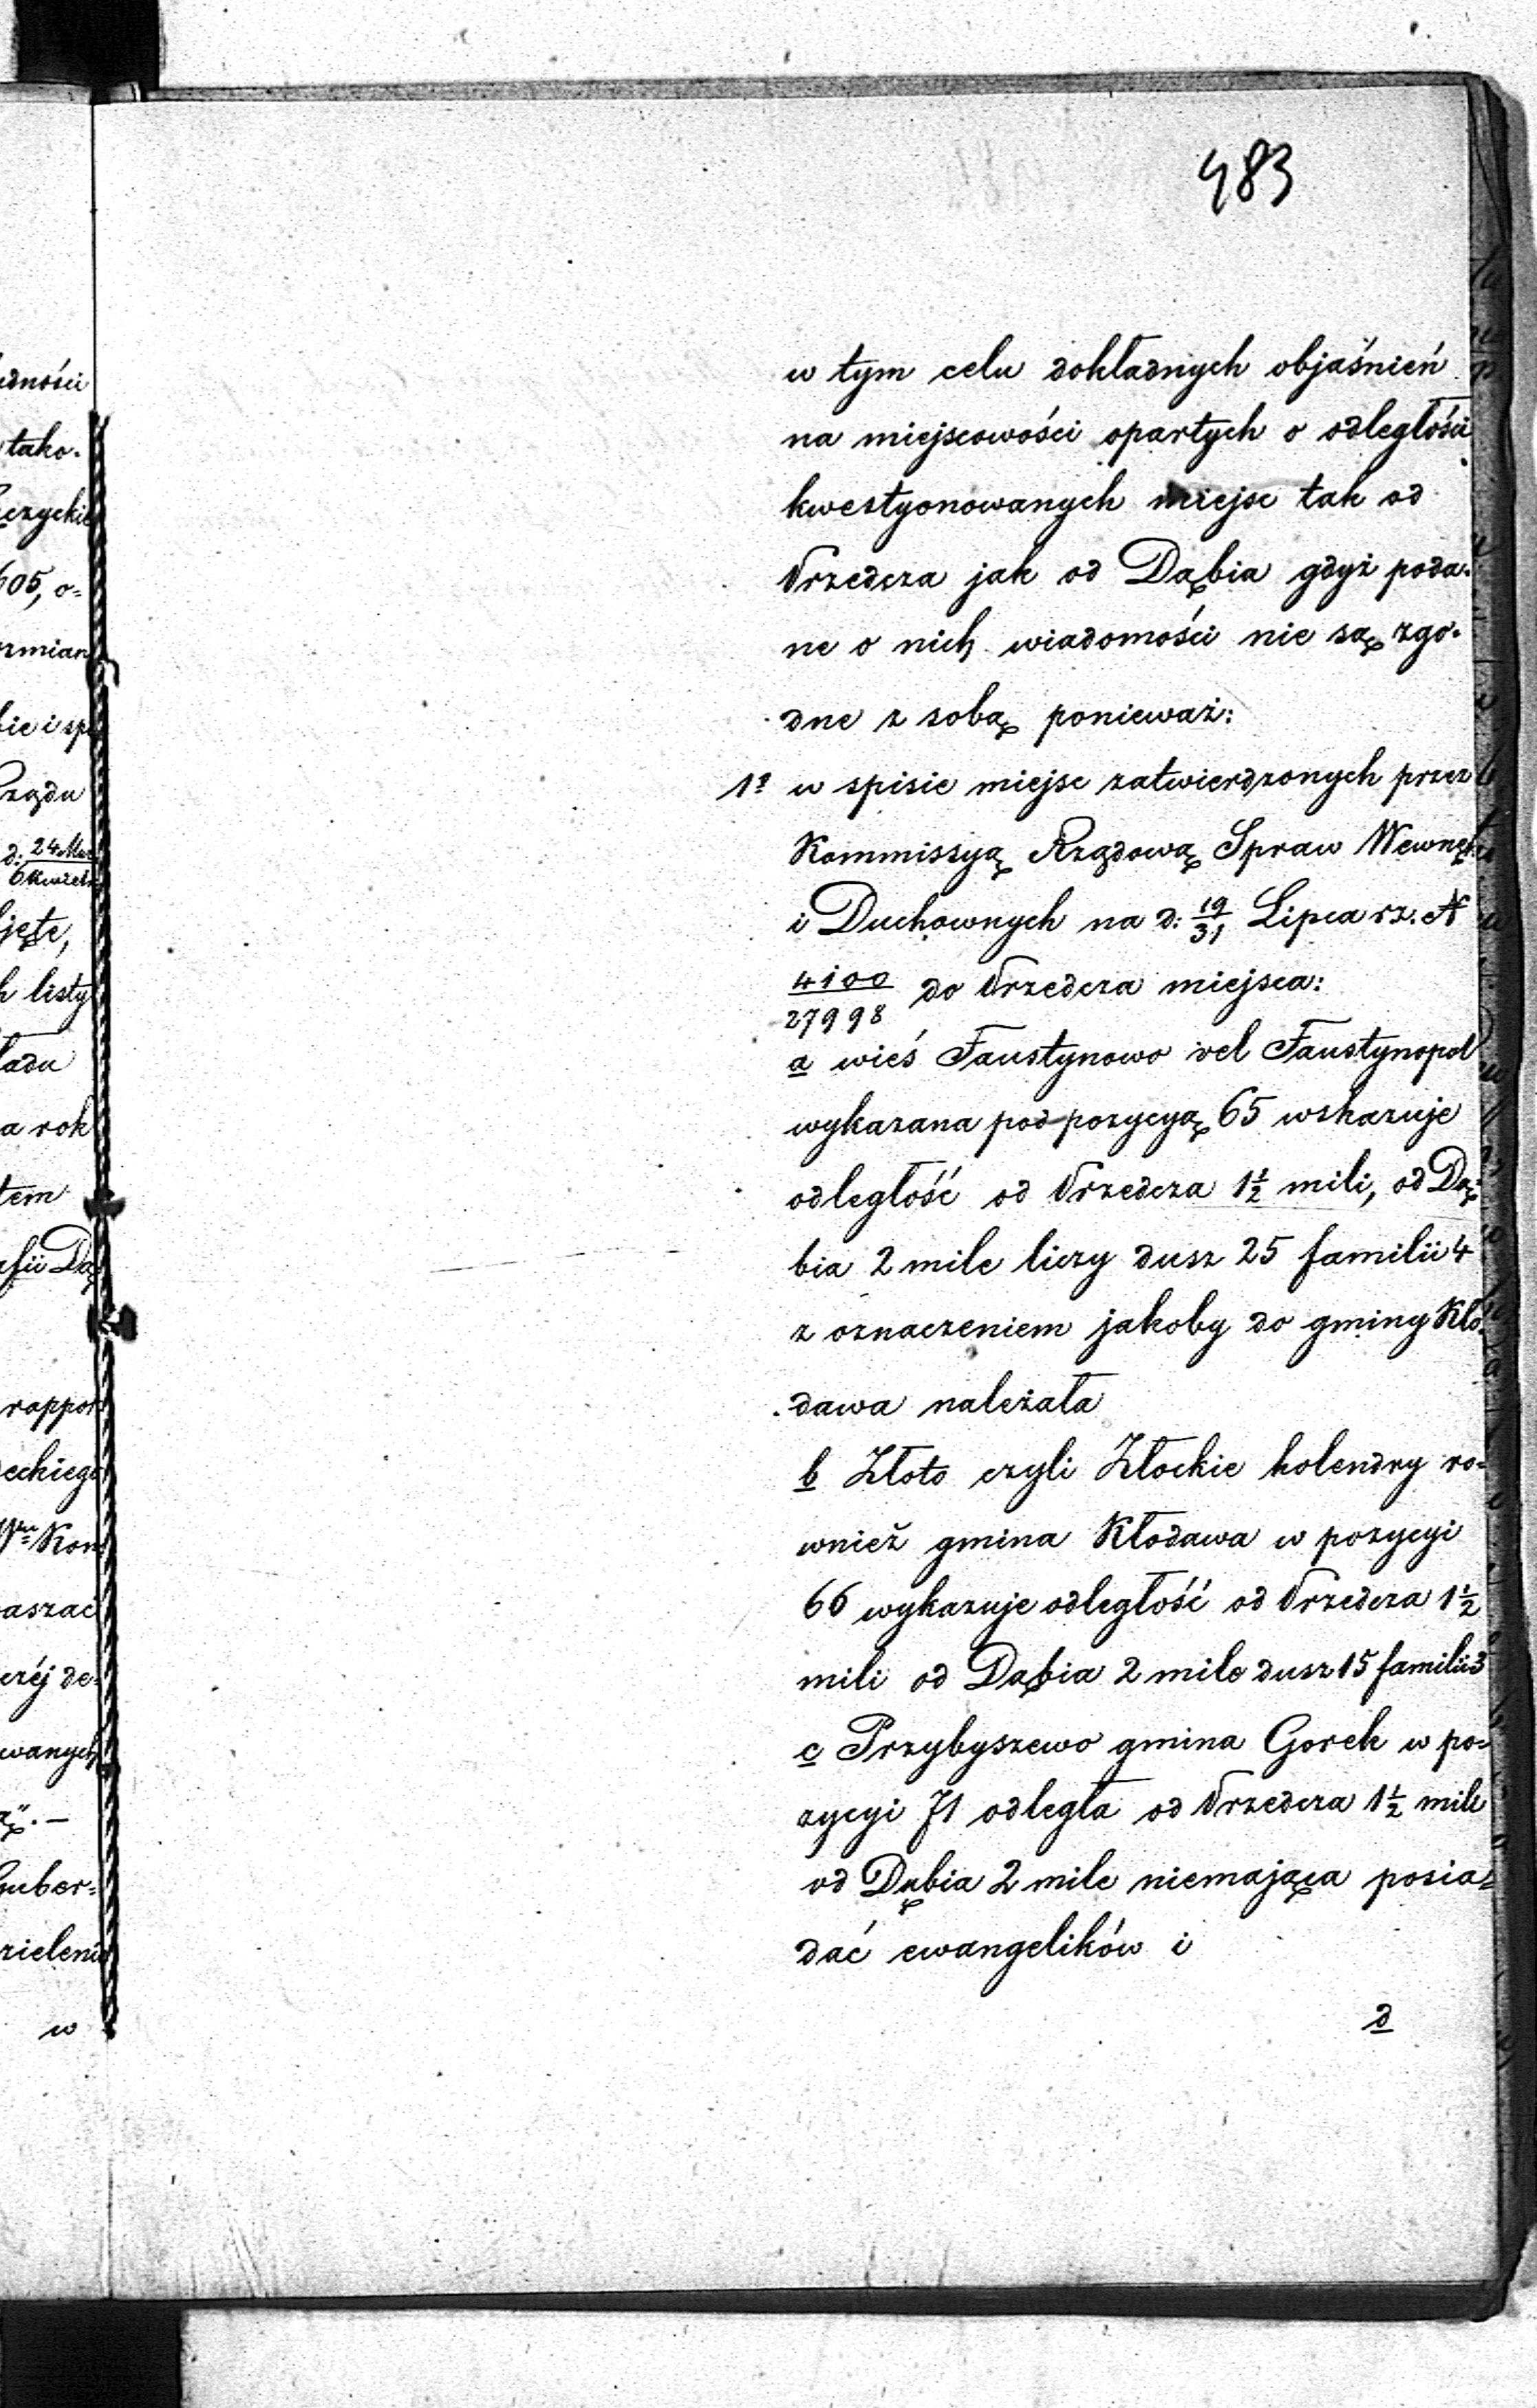 483
w tym celu dokładnych objaśnień
na miejscowości opartych o odległości
kwestyonowanych miejsc tak od
Przedcza jak od Dąbia gdyż poda-
ne o nich wiadomości nie są zgo-
dne z sobą ponieważ:
1º w spisie miejsc zatwierdzonych przez
Kommissyą Rządową Spraw Wewnęt:
i Duchownych na d: 19/31 Lipca rz. N
4100/27998 do Przedcza miejsca:
a wieś Faustynowo vel Faustynopol
wykazana pod pozycyą 65 wskazuje
odległość od Przedcza 1½ mili, od Dą-
bia 2 mile liczy dusz 25 familii 4
z oznaczeniem jakoby do gminy Kło-
dawa należała
b Złoto czyli Złockie holendry ro-
wnież gmina Kłodawa w pozycyi
66 wykazuje odległość od Przedcza 1½
mili od Dąbia 2 mile dusz 15 familii 3
c Przybyszewo gmina Gorek w po-
zycyi 71 odległa od Przedcza 1½ mile
od Dąbia 2 mile niemająca posia-
dać ewangelików i
d
idności
tako-
605, o-
zmian
bie i sp
Rządu
d: 24 Mar/6 Kwiet
jęte,
h listy
ładu
a rok
tem
afii Dą
rappor
eckiego
Kon
aszać
de-
wanych
Guber-
zieleni
w